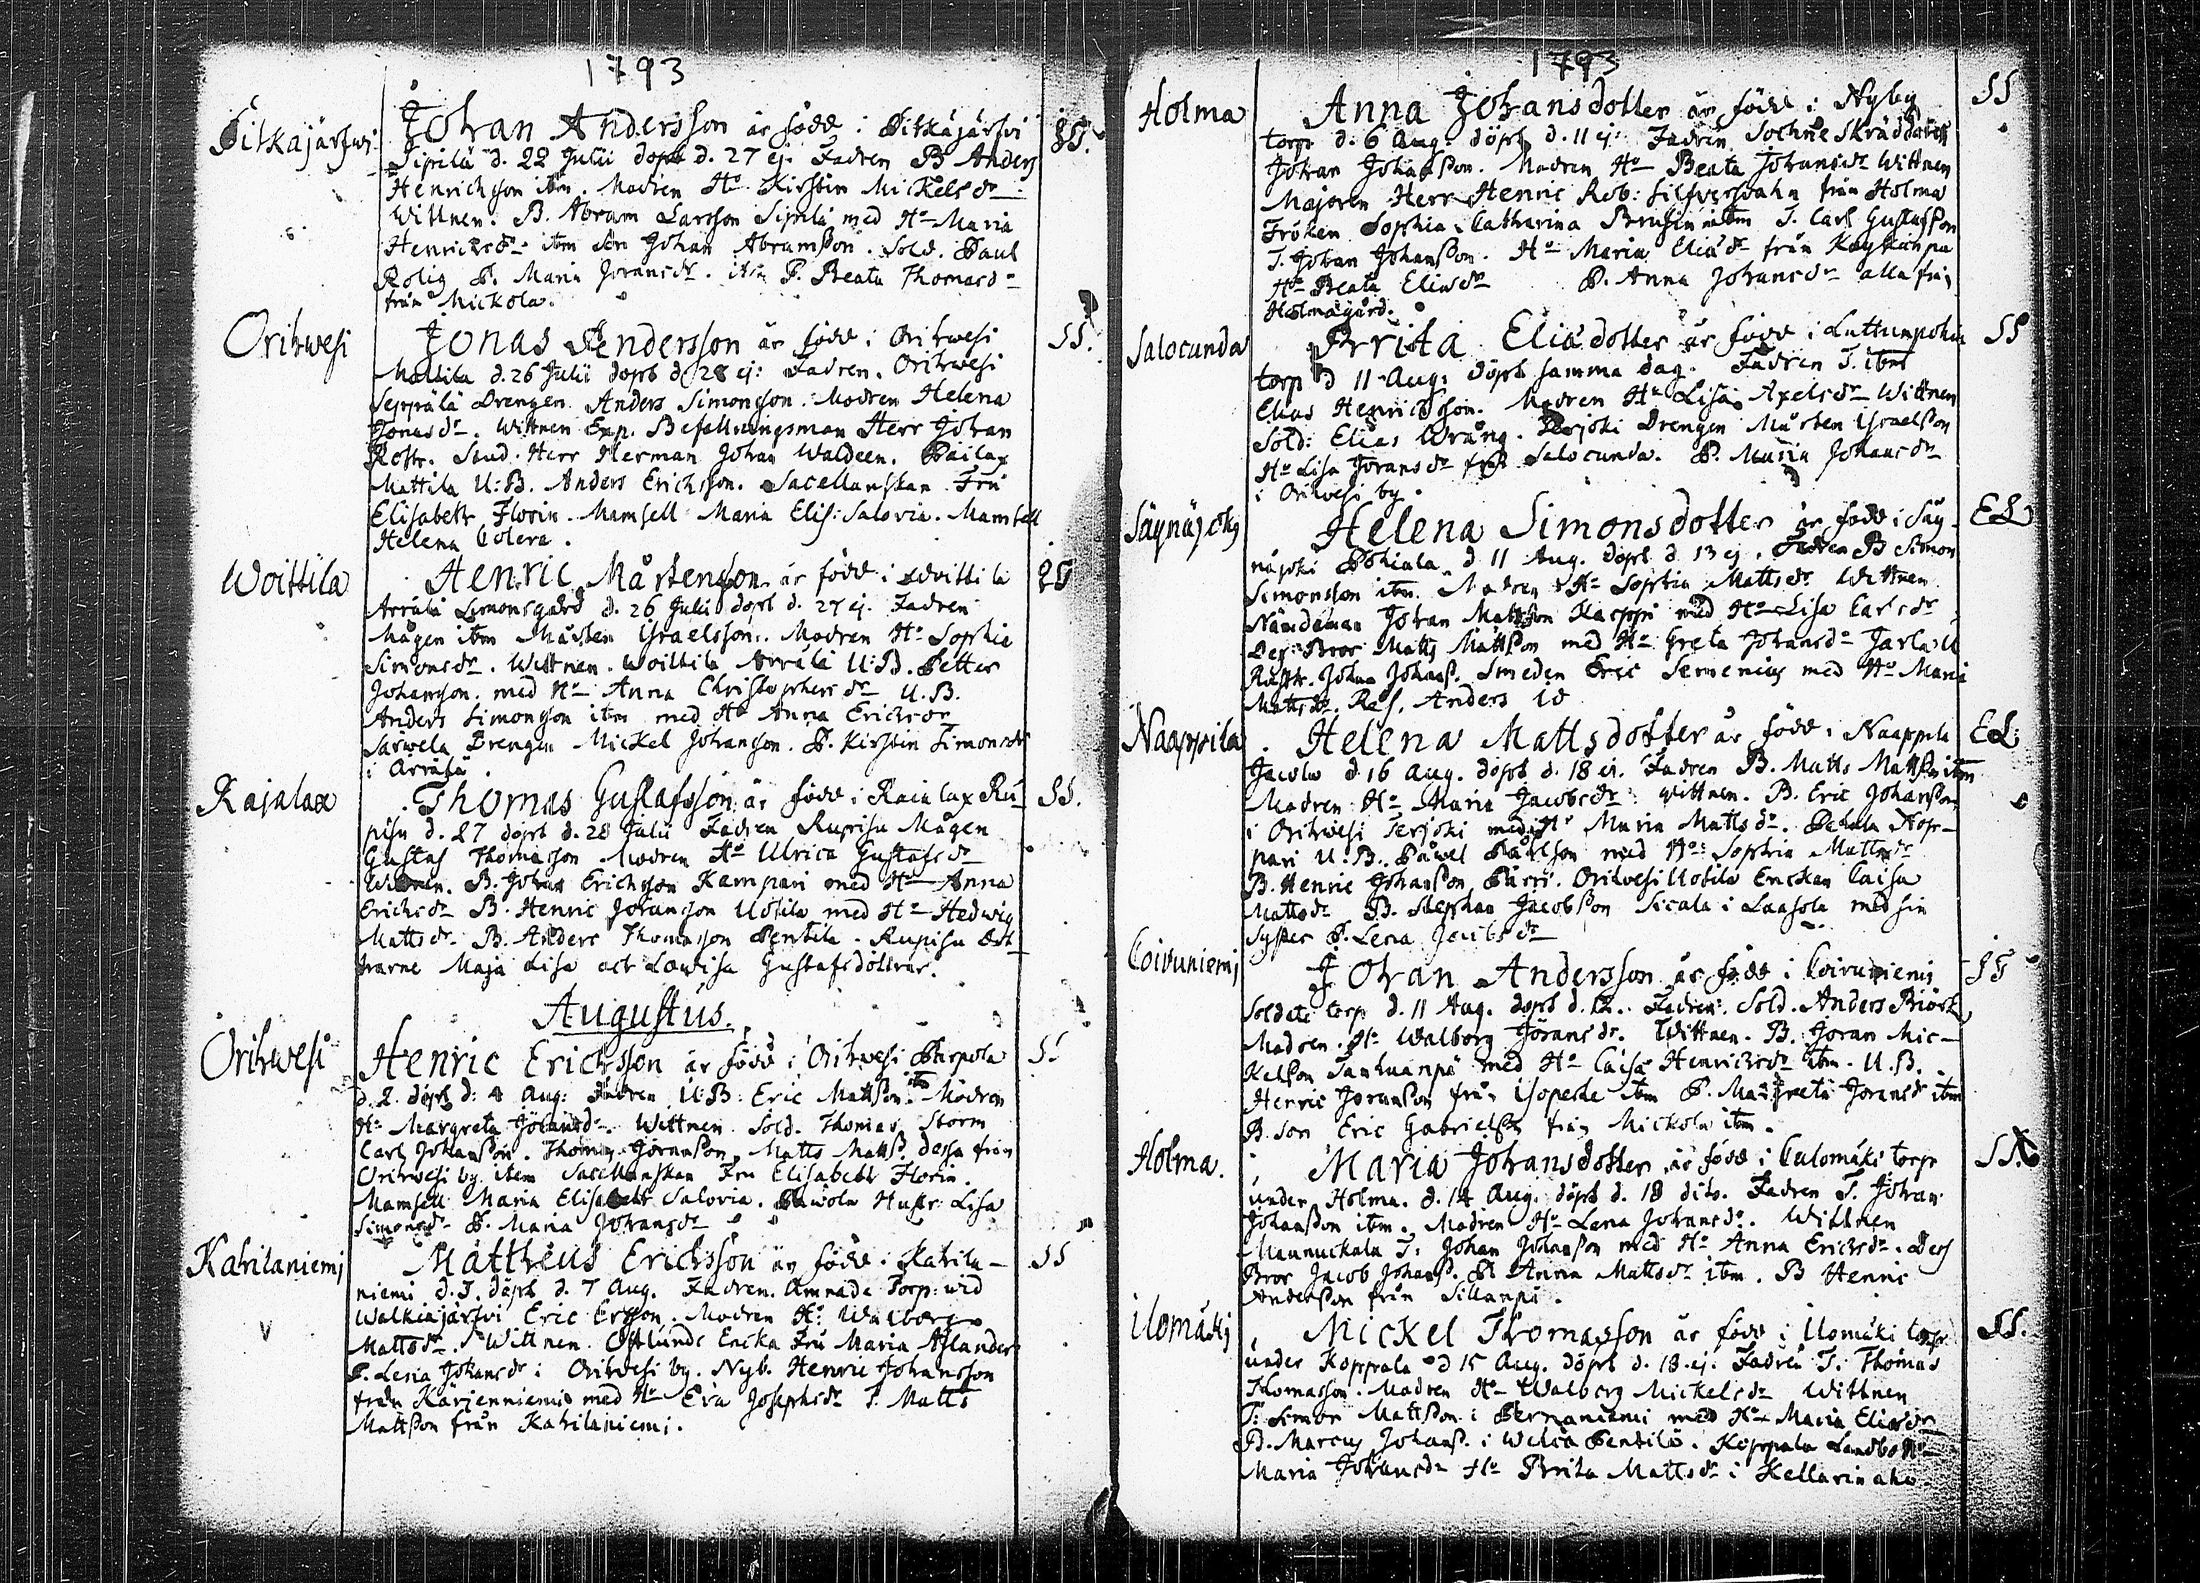 1793
Pitkäjärfwi Johan Andersson är född i Pitkäjärfvi SS.
Sipilä d. 22 Julii döpt d. 27 ej. Fadren B. Anders
Henrichsson itm. Modren Ho Kirstin Mickelsdr
Wittnen. B. Abram Larsson Sipilä med Ho Maria
Henricsdr itm Son Johan Abramsson. Sold. Paul
Rolig P. Maria Joransdr. itm P. Beata Thomasdr
från Mickola.
Orihwesi Jonas Andersson är född i Orihwesi SS.
Mattila d. 26 Julii döpt d. 28 ej: Fadren. Orihwesi
Seppälä Drengen Anders Simonsson. Modren Helena
Jonasdr. Wittnen Exp. Befallningsman Herr Johan
Rostr. Stud. Herr Herman Johan Waldeen. Pailax
Mattila U:B. Anders Ericsson. Sacellanskan Fru
Elisabeth Florin. Mamsell Maria Elis: Salovia. Mamsell
Helena Colera.
Woittila Henric Mårtensson är född i Woittila SS
Arrälä Simonsgård d. 26 Julii döpt d. 27 ej. Fadren
Mågen itm Mårten Israelsson. Modren Ho Sophia
Simonsdr. Wittnen. Woittila Arrälä U:B. Petter
Johansson. med Ho Anna Christophersdr U.B.
Anders Simonsson itm med Ho Anna Ericsdr
Sarwela Drengen Mickel Johansson. P. Kirstin Simonsdr
i Arrälä.
Rajalax Thomas Gustafsson är född i Raialax Ru- SS.
pisu d. 27 döpt d. 28 Julii Fadren Rupisu Mågen
Gustaf Thomasson Modren Ho Ulrica Gustafsdr
Wittnen. B. Johan Erichsson Kampari med Ho Anna
Erichsdr B. Henric Johansson Uotila med Ho Hedwig
Mattsdr. B. Anders Thomasson Pentila. Rupisu Döt-
trarne Maja Lisa och Lowisa Gustafsdöttrar.
Augustus.
Orihwesi Henric Ericksson är född i Orihwesi Purpola SS
d. 2. döpt d: 4 Aug: Fadren U:B: Eric Mattsson itm Modren
Ho Margreta Jöransdr. Wittnen Sold. Thomas Storm
Carl Johansson. Thomas Jöransson. Matts Matts. dessa från
Orihwesi by item Sacellanskan Fru Elisabeth Florin.
Mamsell Maria Elisabeth Salovia. Pawola Hustr. Lisa
Simonsdr P. Maria Johansdr
Kahilaniemi Mattheus Ericksson är född i Kahila- SS
niemi d. 3. döpt d. 7 Aug. Fadren. Ämnade Torp: wid
Walkiajärfvi Eric Ersson. Modren H: Walborg
Mattsdr. Wittnen. Östlunds Encka Fru Maria Aslander
P. Lena Johansdr i Orihwesi by. Nyb. Henric Johansson
från Kärjenniemi med Ho Eva Josephsdr T. Matts
Mattsson från Kahilaniemi.
1793
Holma Anna Johansdotter är född i Nyby SS
torp d. 6 Aug. döpt d. 11 ej: Fadren Sochne Skräddaren
Johan Johansson. Modren Ho Beata Johansdr Wittnen
Majoren Herr Henric Rob: Silfversvahn från Holma
Fröken Sophia Catharina Brusiin itm T. Carl Gustafsson
T. Johan Johansson. Ho Maria Eliädr från Köykänpä
Ho Beata Eliasdr P. Anna Johansdr alla från
Holmagård.
Salocunda Brita Eliädotter är född i Luttunpohia SS
torp d 11 Aug: döpt samma dag. Fadren T. itm
Elias Henricsson. Modren Ho Lisa Axelsdr Wittnen
Sold: Elias Wrång. Terjoki Drengen Mårten Israelsson
Ho Lisa Joransdr från Salocunda. P. Maria Johansdr
i Orihwesi by.
Säynäjoky Helena Simonsdotter är född i Säy- EL
näjoki Pohiala d 11 Aug. döpt d. 13 ej. Fadren B Simon
Simonsson itm. Modren Ho Sophia Mattsdr Wittnen
Nämdeman Johan Mattsson Karppi med Ho Lisa Carlsdr
Des: Bror Matts Mattsson med Ho Greta Johansdr Jarla U
Rustr. Johan Johanss. Smeden Eric Semenius med Ho Maria
Mattsdr. Ref. Anders Id
Naappila Helena Mattsdotter är född i Naappila EL
Jacola d 16 Aug. döpt d. 18 ej. Fadren B. Matts Mattsson itm
Modren Ho Maria Jacobsdr. Wittnen. B. Eric Johansson
i Orihwesi Terjoki med Ho Maria Mattsdr. Pehula Hop-
pari U.B. Påwel Påhlsson med Ho: Sophia Mattsdr
B. Henric Johansson Pärri. Orihvesi Uotila Enckan Caisa
Mattsdr B. Stephan Jacobsson Sicala i Laasola med sin
Syster P. Lena Jacobsdr
Coivuniemi Johan Andersson är född i Coivuniemi SS
Soldate torp d. 11 Aug. döpt d. 12. Fadren: Sold. Anders Biörk
Modren. Ho Walborg Jöransdr. Wittnen. B. Joran Mic-
kelsson Tanhuanpä med Ho Caisa Henricsdr itm. U.B.
Henric Joransson från Isopehe itm P. Margreta Joransdr itm
B. son Eric Gabrielsson från Mickola itm.
Holma. Maria Johansdotter är född i Calomäki torp SS.
under Holma. d. 14 Aug. döpt d. 18 dito. Fadren T. Johan
Johansson itm. Modren Ho Lena Johansdr. Wittnen
Maunuckala T: Johan Johansson med Ho Anna Ericsdr. Dess
Bror Jacob Johanss. P. Anna Mattsdr itm. B Henric
Andersson från Sillanpä.
Ilomäki Mickel Thomasson är född i Ilomäki torp SS.
under Koppala d 15 Aug. döpt d. 18 ej. Fadren T. Thomas
Thomasson. Modren Ho Walborg Mickelsdr Wittnen
T: Simon Mattsson i Pernaniemi med Ho Maria Eliasdr
B. Marcus Johanss. i Wehca Pentilä. Koppala Landbo Ho
Maria Johansdr Ho Brita Mattsdr i Kellarinaho